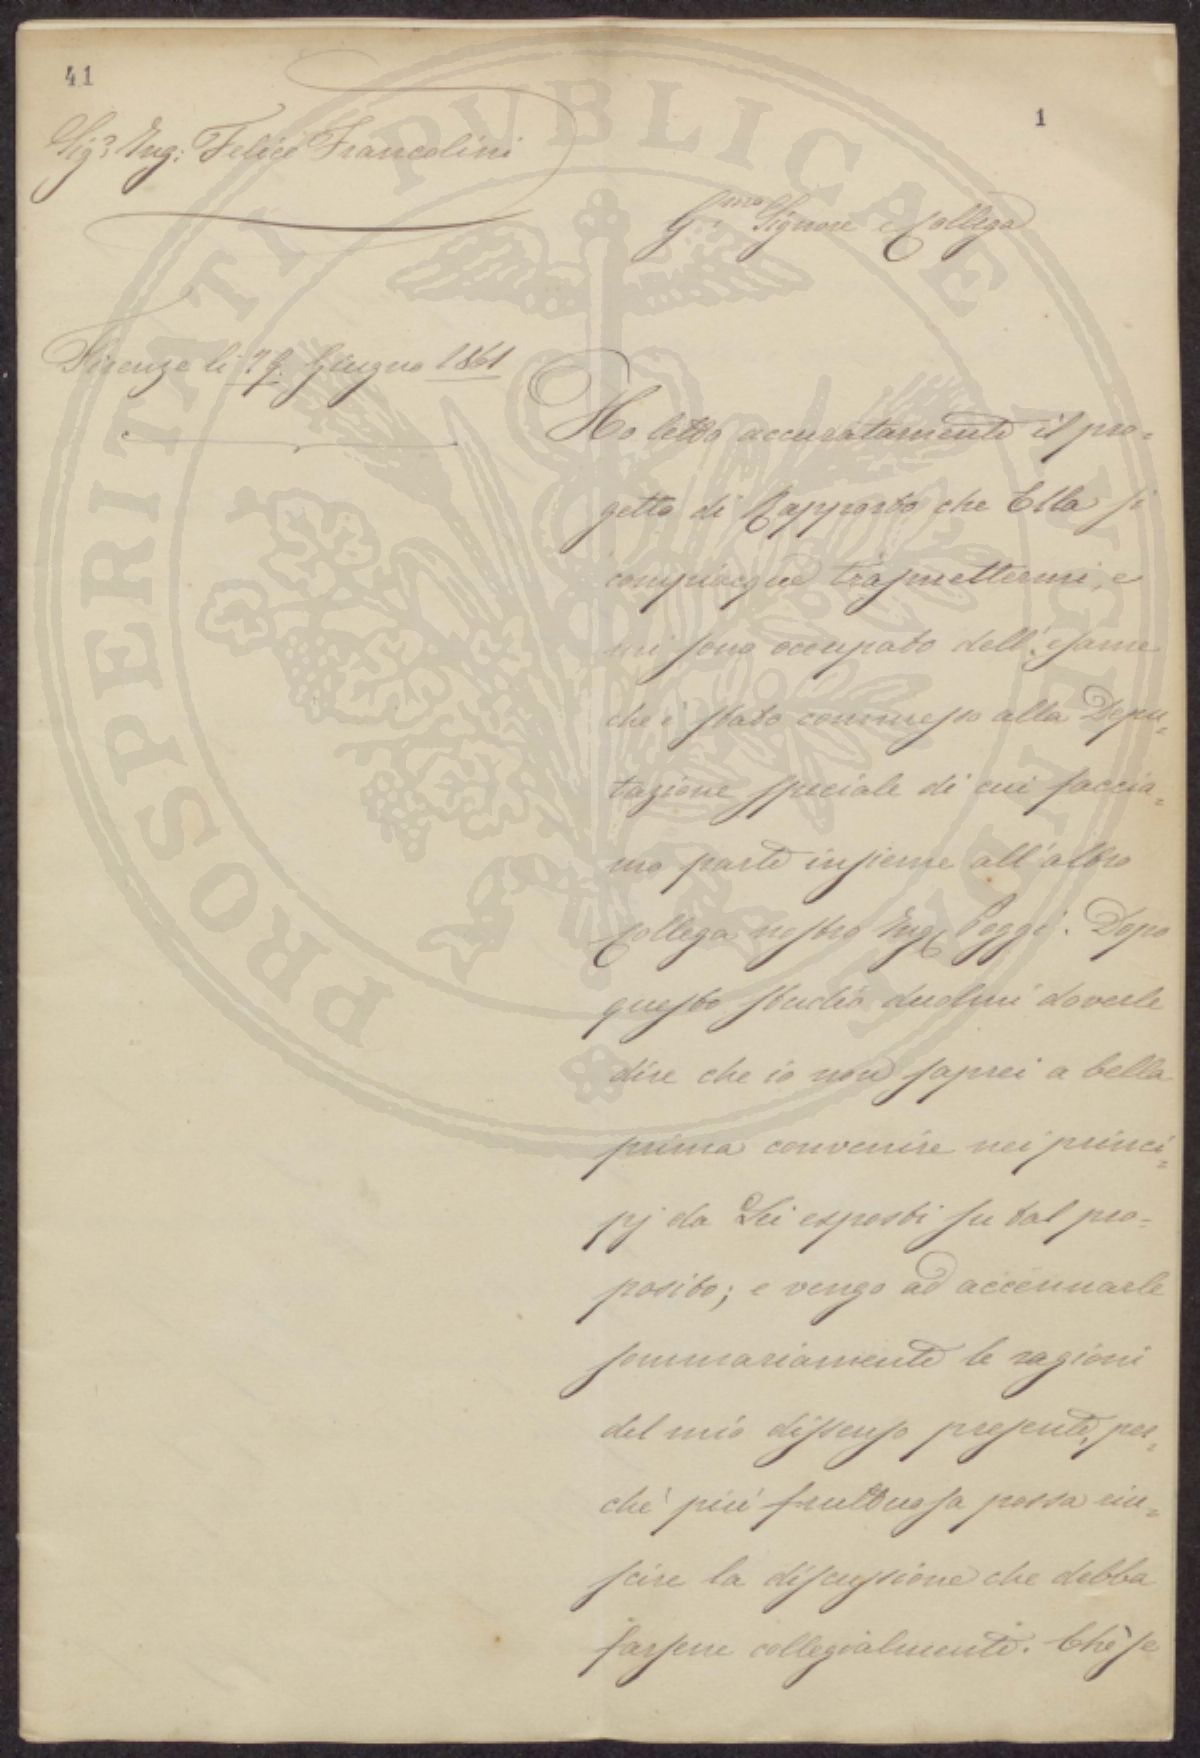 41
1
Sig.r Ing: Felice Francolini
G.mo Signore e Collega
Firenze li 29. Giugno 1861
Ho letto accuratamente il pro=
getto di Rapporto che Ella si
compiacque trasmettermi, e
mi sono occupato dell'esame
che è stato commesso alla Depu=
tazione speciale di cui faccia=
mo parte insieme all'altro
Collega nostro Ing. Poggi. Dopo
questo studio duolmi doverle
dire che io non saprei a bella
prima convenire nei princi=
pj da Lei esposti su tal pro=
posito; e vengo ad accennarle
sommariamente le ragioni
del mio dissenso presente, per=
chè più fruttuosa possa riu=
scire la discussione che debba
farsene collegialmente. Chè se
PROSPERITATI PVBLICAE AVGENDAE